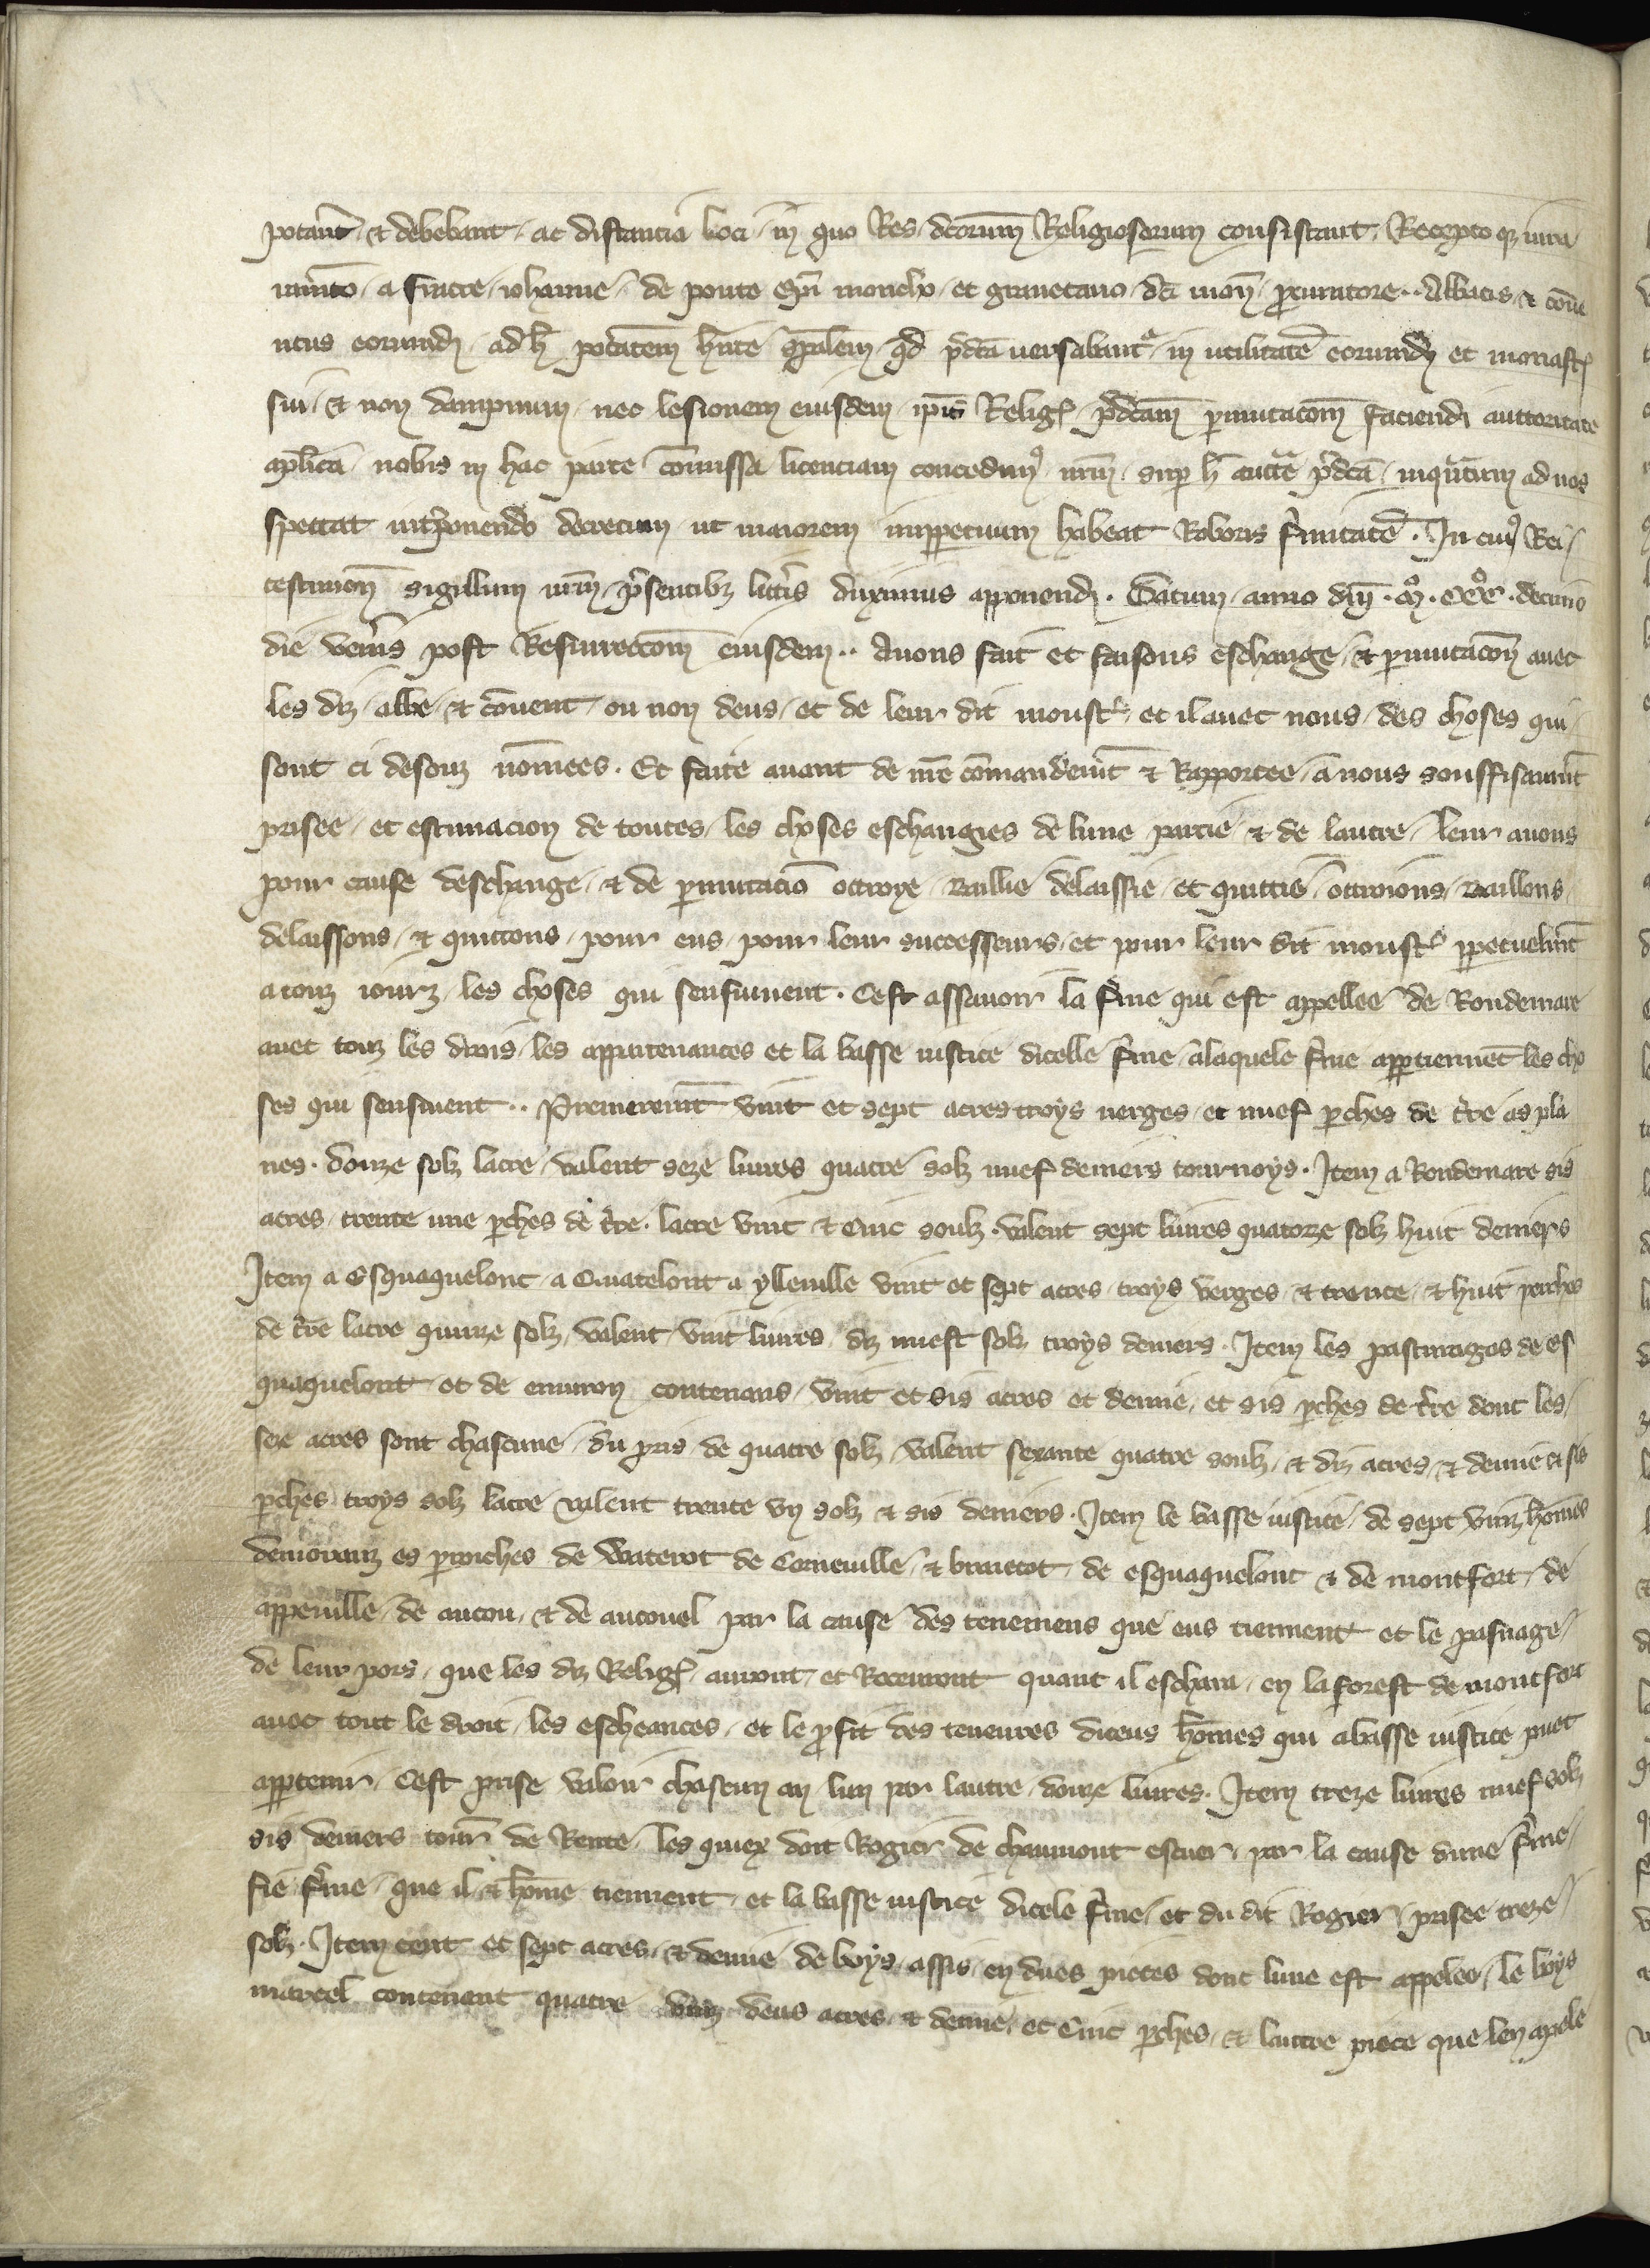 potant̄ / & debebant / ac distancia loci / in quo Res / dc̄orum Religiosorum consistant / Recepto qꝫ iura
mento / a fratre / iohanne / de ponte monacho / et granetario / dc̄i mon̄ / procuratore .. Abbatis / & cōue
ntus eorumdem / ad h̄ potc̄atem h̄nte sp̄alem / qd̄ p̄dcā uersabant᷑ / in utilitatē eorumdem et monast̾
sui / & non dampnum / nec lesionem eiusdem / ip̄is Relig̾ / p̄dcām ꝑmutacōm faciendi auttoritate
apl̄ica / nobis in hac parte cōmissa licenciam concedimꝰ / nr̄m / sup̄ h̄ auctē p̄dcā / inquantum ad nos
spectat int̾ponendo decretum / ut maiorem inꝑpetuum habeat Roboris f̾mitatē . In cuiꝰ Rei /
testimon̄ sigillum nr̄m / p̄sentibꝫ litt̾is duximus apponendum . Datum / anno dn̄i . mͦ . cccͦ . decimo
die ven̾is post Resurreccōm eiusdem .. Auons fait et faisons eschange / & ꝑmutacōn auec
les diz / abbe / & cōuent / ou non deus / et de leur dit moust̾ / et il auec nous / des choses qui
sont ci desouz nōmees . Et faite auant de nr̄e cōmandem̄t & Rapportee / a nous souffisaum̄t
prisee / et estimacion de toutes / les choses eschangies de lune partie / & de lautre / leur auons
pour cause deschange / & de ꝑmutacio octroye / baillie delaissie / et quittie / octroions / baillons /
delaissons / & quittons / pour eus / pour leur successeurs / et pour leur dit moust̾ ꝑpetuelm̄t
a touz iourz / les choses qui sensuiuent . Cest assauoir la f̾me qui est appellee de Rondemare
auec touz les drois / les appartenances et la basse iustice dicelle f̾me / a laquele f̾me appartiennēt les cho
ses qui sensiuent .. Premerem̄t vint et sept acres troys uerges / et nuef ꝑches de t̾re as pla
nes . douze solz lacre / valent seze liures quatre solz nuef deniers tournoys . Item a Rondemare sis
acres / trente une ꝑches de t̾re . lacre vint & cinc soulz . valent sept liures quatorze solz huit deniers
Item a Esquaquelont / a a ylleuille vint et sept acres / troys verges / & trente / & huit perches
de t̾re lacre quinze solz / valent vint liures / diz nueft solz troys deniers . Item les pasturages de es
quaquelont et de enuiron contenans / vint et sis acres et demie / et sis ꝑches de t̾re dont les /
seze acres sont chascune / du pris de quatre solz / valent sexante quatre soulz / & diz acres / & demie & sis
ꝑches troys solz lacre valent trente vn solz & sis deniers . Item le basse iustice / de sept vinz hōmes
demoranz es ꝑroiches de Watetot de Corneuille / & brautot / de esquaquelont & de montfort / de
appeuille / de aucou / & de aucouel par la cause des tenemens que eus tiennent et le pasnage /
de leur pors / que les diz Relig̾ auront / et Receuront quant il escharra / en la forest de montfort
auec tout le droit / les escheances / et le ꝓfit des teneures diceus hōmes qui a basse iustice puet
appartenir / cest prise valoir chascun an lun par lautre / douze liures . Item treze liures nuef solz
sis deniers tour̄ de Rente / les quiex doit Rogier de chaumont escuer / par la cause dune f̾me /
fie f̾me / que il & hōme tiennent / et la basse iustice dicele f̾me / et du dit Rogier / prisee treze /
solz . Item cent et sept acres / & demie de boys / assis / en dues pieces dont lune est appelee / le boys
marcel contenant quatre vinz deus acres / & demie / et cinc ꝑches / & lautre piece que len apele